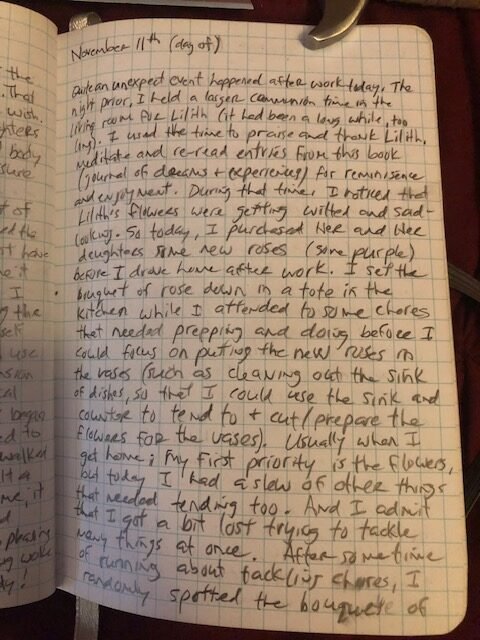 November 11th (day of)
Quite an unexpect event happened after work today. The
night prior, I held a larger communion time in the
living room for Lilith (it had been a long while, too
long). I used the time to praise and thank Lilith,
meditate and re-read entries from this book
(journal of dreams + experiences) for reminisence
and enjoyment. During that time, I noticed that
Lilith's flowers were getting wilted and sad-
looking. So today, I purchased Her and Her
daughters some new roses (some purple)
before I drove home after work. I set the
bouquet of rose down in a tote in the
kitchen while I attended to some chores
that needed prepping and doing before I
could focus on putting the new roses in
the vases (such as cleaning out the sink
of dishes, so that I could use the sink and
counter to tend to + cut/prepare the
flowers for the vases). Usually when I
get home; my first priority is the flowers,
but today I had a slew of other things
that needed tending too. And I admit
that I got a bit lost trying to tackle
many things at once. After sometime
of running about tackling chores, I
randomly spotted the bouquete of
the
. That
wish.
ghters
body
sure
t of
ed the
t have
I
g the
self
use
ension
cal
began
ed to
walked
lt a
me, it
d
pleasing
woke